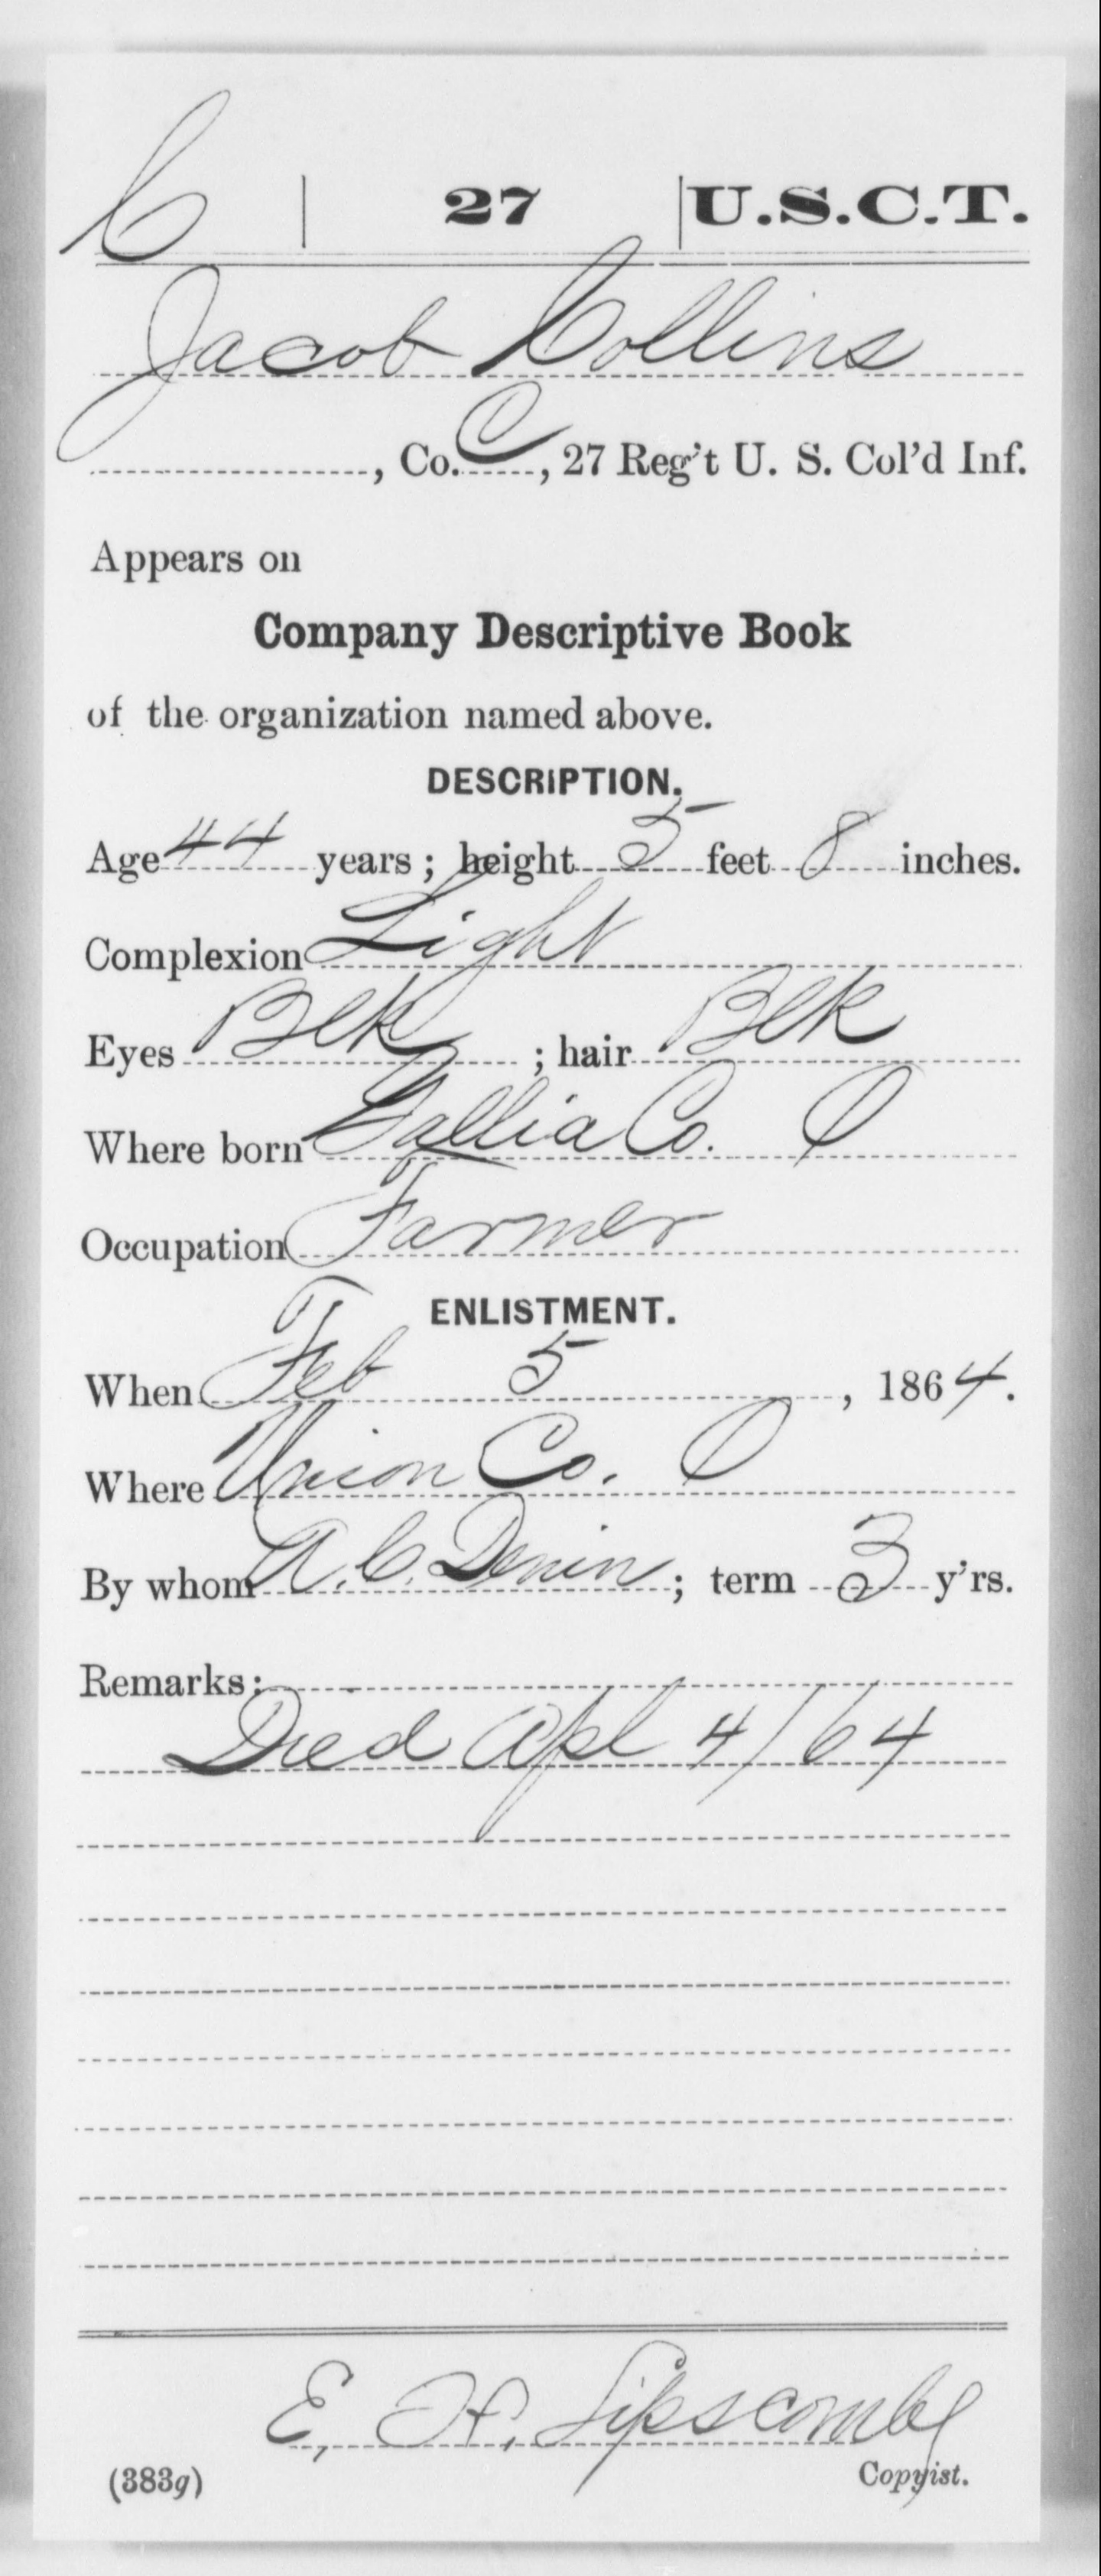 C | 27 | U.S.C.T.
Jacob Collins
, Co. C, 27 Reg't U. S. Col'd Inf.
Appears on
Company Descriptive Book
of the organization named above.
DESCRIPTION.
Age 44 years; height 5 feet 8 inches.
Complexion Light
Eyes Blk; hair Blk
Where born Gallia Co. O
Occupation Farmer
ENLISTMENT.
When Feb 5, 1864.
Where Union Co. O
By whom A. C. Demin; term 3 y'rs.
Remarks:
Died Apl 4/64
E. H. Lipscomb
(383g) Copyist.